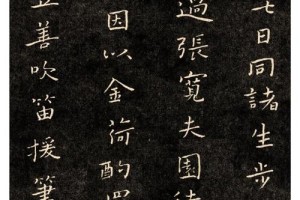 七日同諸生步
過張寬夫園待
因以金荷酌眾
善吹笛援筆